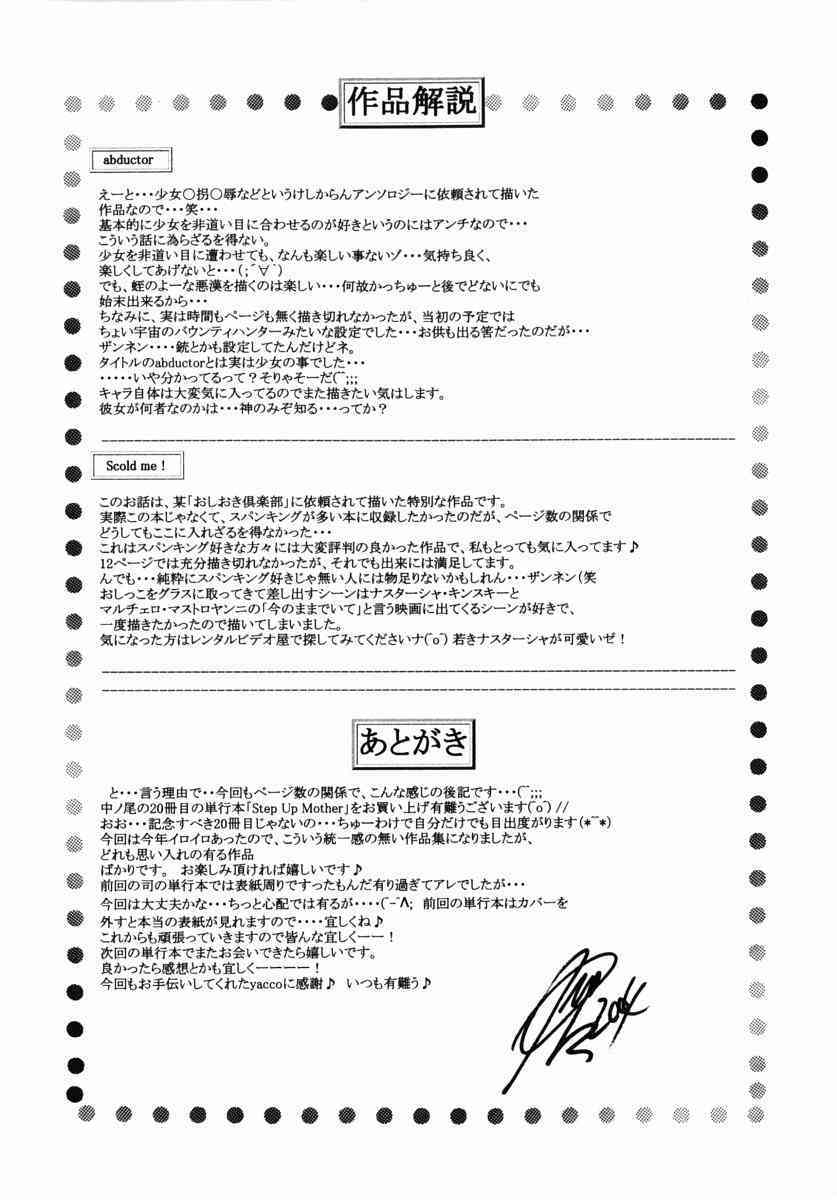 作品解説
abductor
えーと・・・少女○拐○辱などというけしからんアンソロジーに依頼されて描いた
作品なので・・・笑・・・
基本的に少女を非道い目に合わせるのが好きというのにはアンチなので・・・
こういう話に為らざるを得ない。
少女を非道い目に遭わせても、なんも楽しい事ないゾ・・・気持ち良く、
楽しくしてあげないと・・・(;´∀`)
でも、蛭のよーな悪漢を描くのは楽しい・・・何故かっちゅーと後でどないにでも
始末出来るから・・・
ちなみに、実は時間もページも無く描き切れなかったが、当初の予定では
ちょい宇宙のバウンティハンターみたいな設定でした・・・お供も出る筈だったのだが・・・
ザンネン・・・・銃とかも設定してたんだけどネ。
タイトルのabductorとは実は少女の事でした・・・
・・・・・いや分かってるって？そりゃそーだ(^^;;;
キャラ自体は大変気に入ってるのでまた描きたい気はします。
彼女が何者なのかは・・・神のみぞ知る・・・ってか？
Scold me !
このお話は、某「おしおき倶楽部」に依頼されて描いた特別な作品です。
実際この本じゃなくて、スパンキングが多い本に収録したかったのだが、ページ数の関係で
どうしてもここに入れざるを得なかった・・・
これはスパンキング好きな方々には大変評判の良かった作品で、私もとっても気に入ってます♪
12ページでは充分描き切れなかったが、それでも出来には満足してます。
んでも・・・純粋にスパンキング好きじゃ無い人には物足りないかもしれん・・・ザンネン(笑
おしっこをグラスに取ってきて差し出すシーンはナスターシャ・キンスキーと
マルチェロ・マストロヤンニの「今のままでいて」と言う映画に出てくるシーンが好きで、
一度描きたかったので描いてしまいました。
気になった方はレンタルビデオ屋で探してみてくださいナ(^o^) 若きナスターシャが可愛いぜ！
あとがき
と・・・言う理由で・・今回もページ数の関係で、こんな感じの後記です・・・(^^;;;
中ノ尾の20冊目の単行本「Step Up Mother」をお買い上げ有難うございます(^o^)//
おお・・・記念すべき20冊目じゃないの・・・ちゅーわけで自分だけでも目出度がります(*^^*)
今回は今年イロイロあったので、こういう統一感の無い作品集になりましたが、
どれも思い入れの有る作品
ばかりです。 お楽しみ頂ければ嬉しいです♪
前回の司の単行本では表紙周りですったもんだ有り過ぎてアレでしたが・・・
今回は大丈夫かな・・・ちっと心配では有るが・・・・(^-^A; 前回の単行本はカバーを
外すと本当の表紙が見れますので・・・・宜しくね♪
これからも頑張っていきますので皆んな宜しくーー！
次回の単行本でまたお会いできたら嬉しいです。
良かったら感想とかも宜しくーーーー！
今回もお手伝いしてくれたyaccoに感謝♪ いつも有難う♪
2004